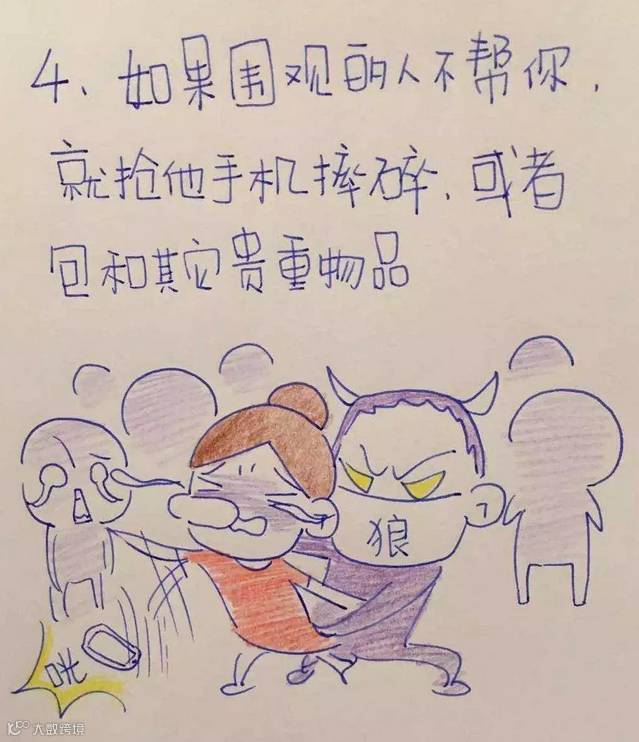 4、如果围观的人不帮你，
就抢他手机摔碎、或者
包和其它贵重物品
狼
咣
大数跨境